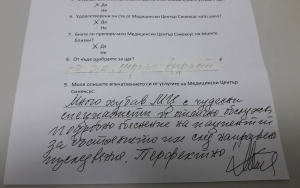 Не
6. Удовлетворени ли сте от Медицински Център Синексус като цяло?
X Да
Не
7. Бихте ли препоръчали Медицински Център Синексус на Вашите близки?
X Да
Не
8. От къде дочухте за нас?
9. Моля опишете впечатлението си от услугите на Медицински Център Синексус:
Много хубав МЦ с чудесни
специалисти и отлично обслужване,
подробно обяснение на пациентите
за състоянието им след направени
изследвания. Перфектно